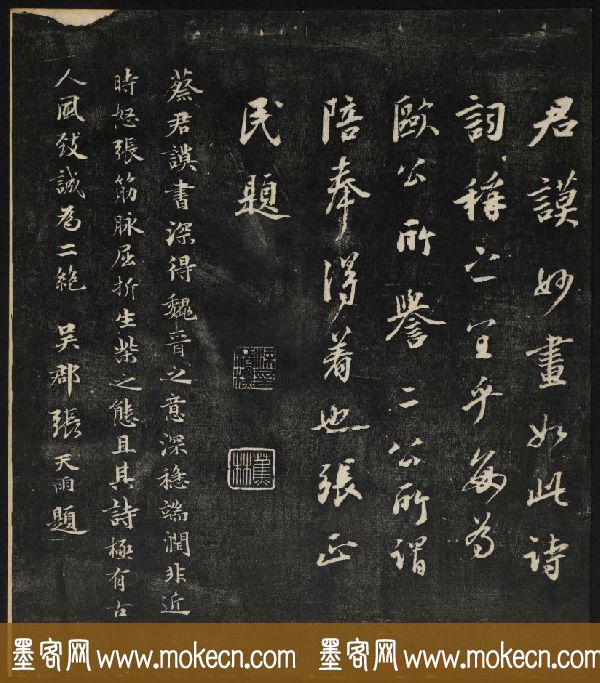 君謨妙畫如此詩
詞稱之宜乎每為
歐公所譽二公所謂
陪奉得着也張正
民題
蕉林
蔡君謨書深得魏晉之意深穩端潤非近
時怒張筋脉屈折生柴之態且其詩極有古
人風致誠為二絶 吳郡張天雨題
墨客网 www.mokecn.com 墨客网 www.mokecn.com